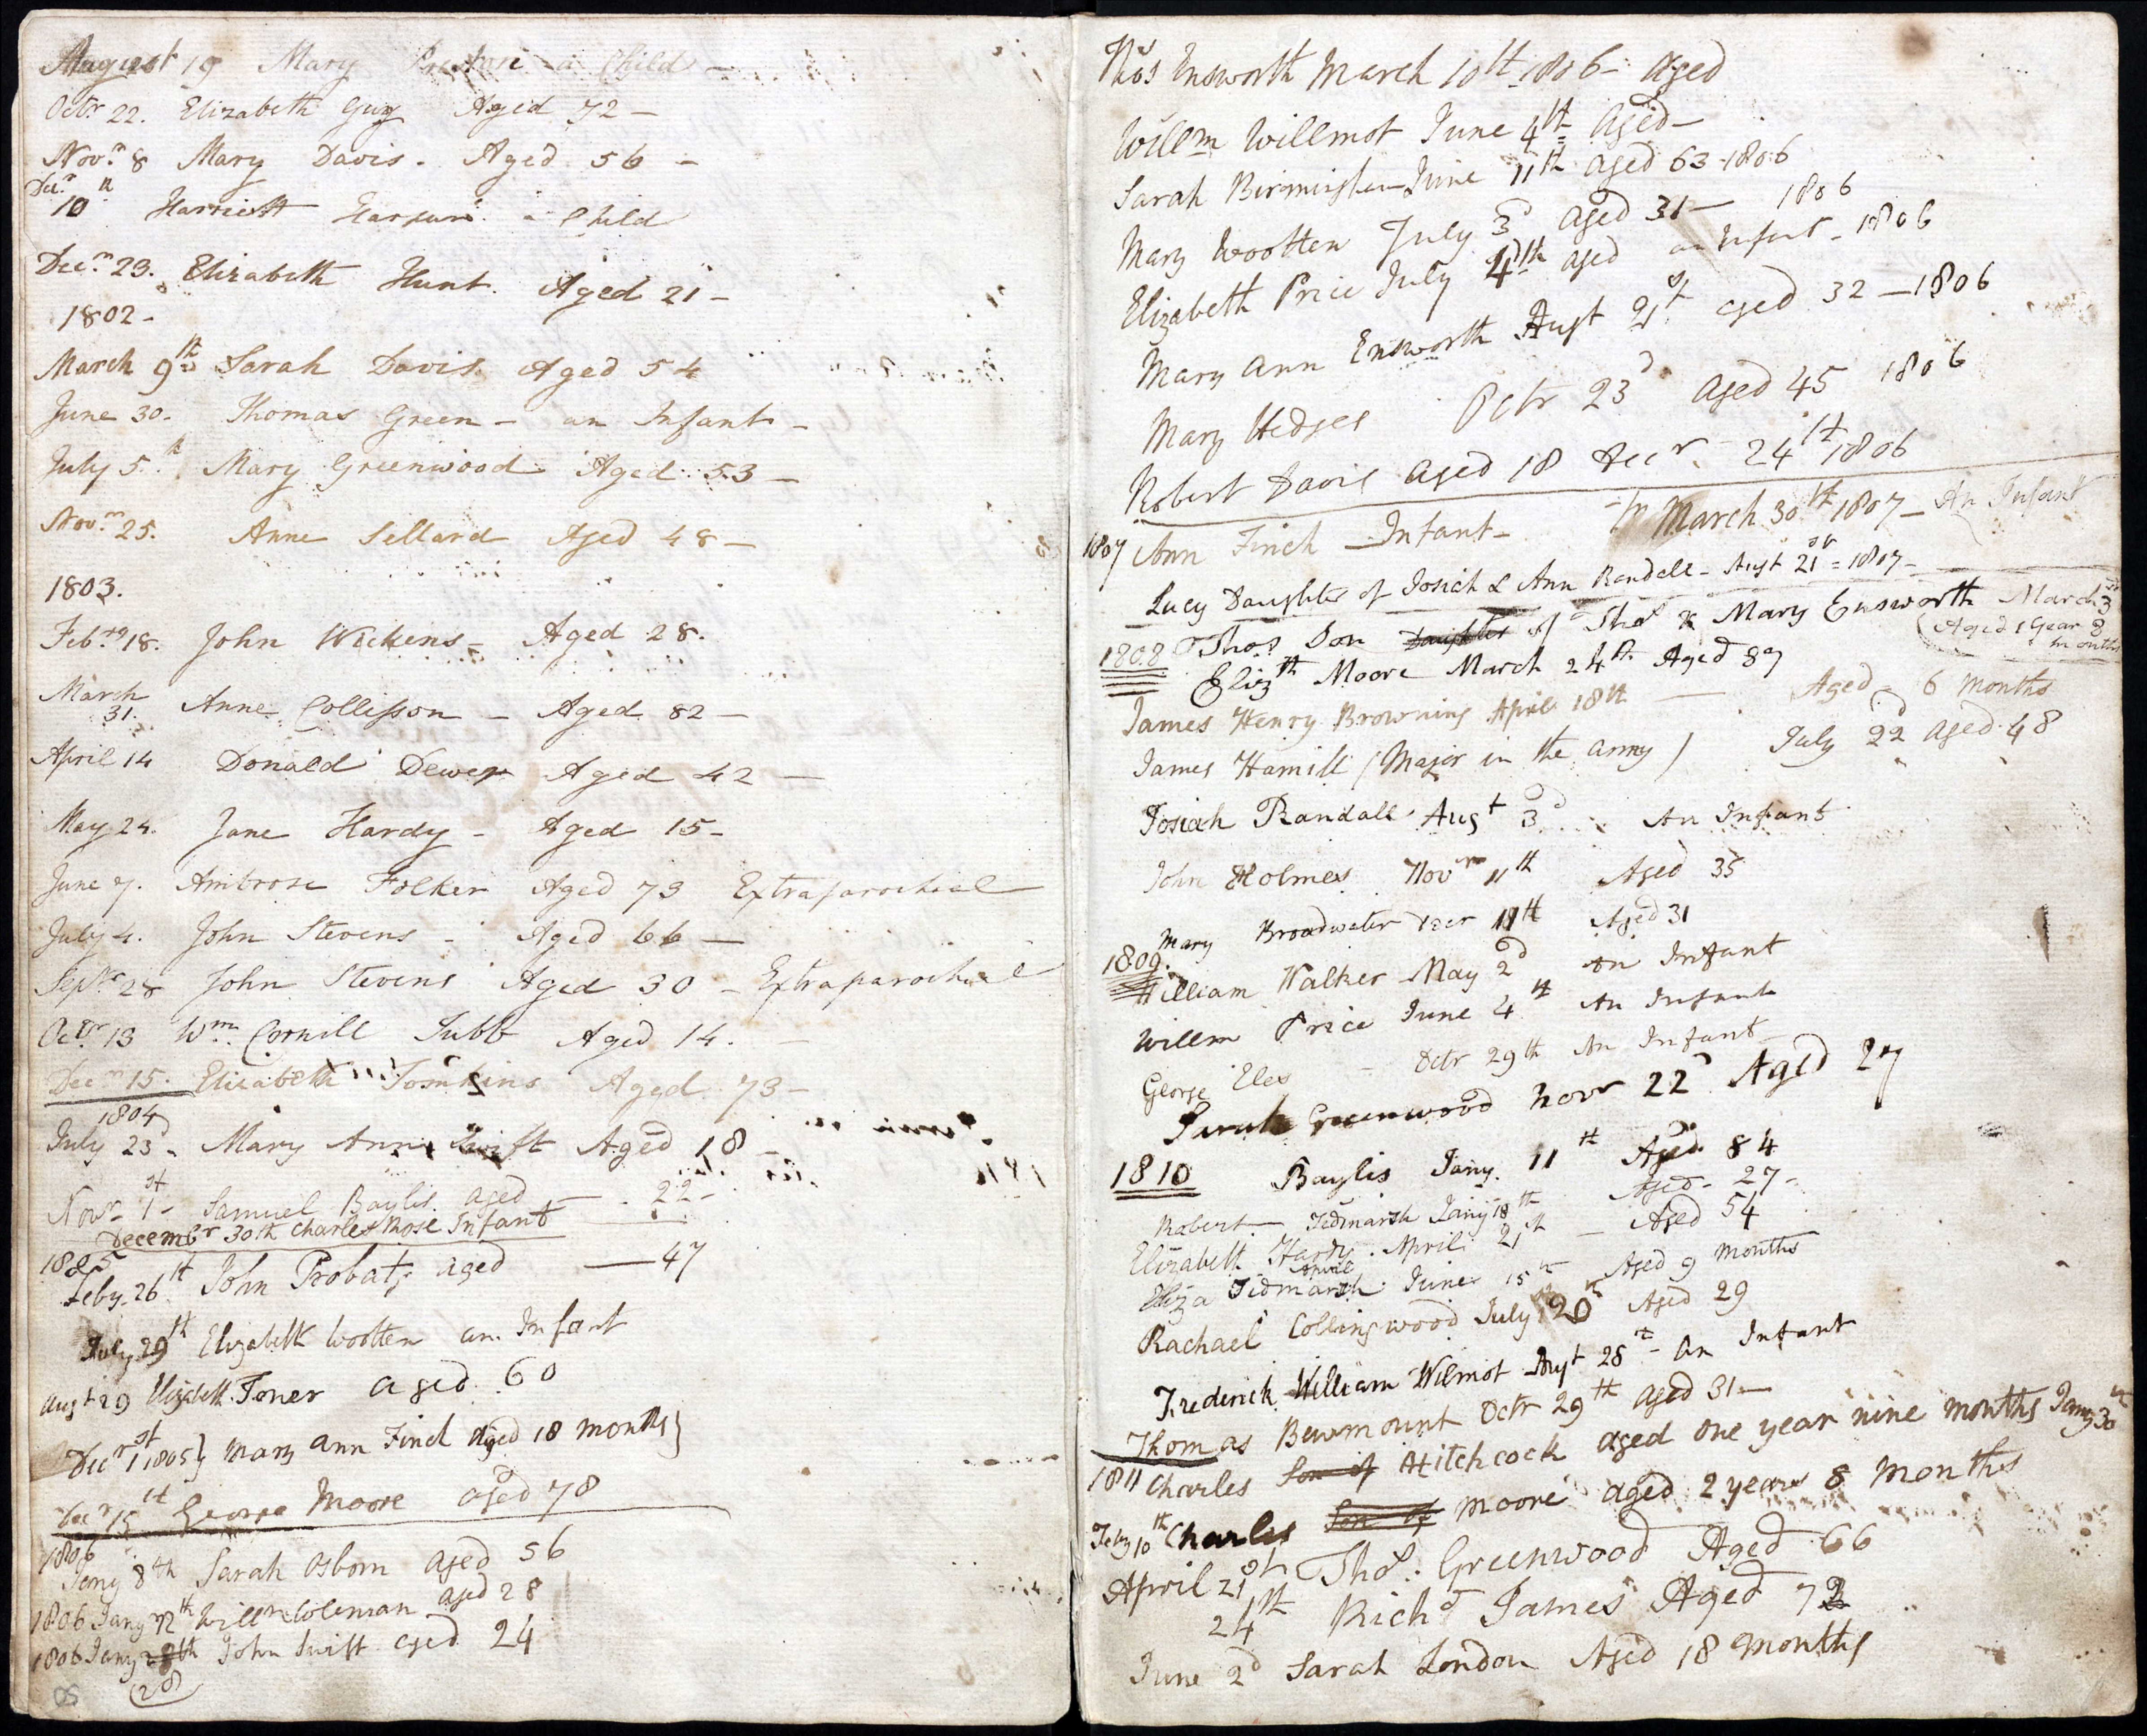 August 19 Mary a Child -
Octr 22. Elizabeth Guy Aged 72 -
Novr 8 Mary Davis - Aged 56 -
Decr 10th Harriott a Child
Decr 23. Elizabeth Hunt. Aged 21 -
1802 -
March 9th Sarah Davis. Aged 54
June 30 - Thomas Green - an Infant -
July 5th Mary Greenwood Aged 53 -
Novr 25. Anne Sellard Aged 48 -
1803.
Febry 18. John Wickens - Aged 28.
March 31. Anne Collisson - Aged 82 -
April 14 Donald Dewer Aged 42 -
May 24. Jane Hardy - Aged 15 -
June 7. Ambrose Folker Aged 73 Extraparochial
July 4. John Stevens - Aged 66 -
Septr 28 John Stevens Aged 30 - Extraparochial
Octr 13 Wm Cornill Tubb Aged 14. -
Decr 15. Elizabeth Tomkins Aged 73 -
1804
July 23d - Mary Ann Swift Aged 18 -
Novr 1st - Samuel Baylis aged - 22 -
Decembr 30th Charles Rose Infant
1805
Feby 26th John Probats aged - 47
July 29th Elizabeth Wootten an Infant
Augt 29 Elizabeth Toner aged 60
Decr 1st 1805 } Mary Ann Finch Aged 18 months }
Decr 15th George Moore aged 78
1806
Jany 8th Sarah Osborn aged 56
1806 Jany 12th Willm Coleman aged 28
1806 Jany 28th John Swift aged 24
(28)
Thos Ensworth March 10th 1806 - Aged
Willm Willmot June 4th Aged -
Sarah Birmingham June 11th aged 63 - 1806
Mary Wootten July 3d aged 31 - 1806
Elizabeth Price July 4th aged an Infant - 1806
Mary Ann Ensworth Augt 21st aged 32 - 1806
Mary Hedges Octr 23d aged 45 1806
Robert Davis aged 18 Decr 24th 1806
1807 Ann Finch - Infant - March 30th 1807 - An Infant
Lucy Daughter of Josiah & Ann Randall - Augt 21st = 1807 -
1808 Thos Son Daughter of Thos & Mary Ensworth March 3d
(Aged 1 Year 8 months
Elizth Moore March 24th Aged 87
James Henry Browning April 18th - Aged 6 Months
James Hamill (Major in the army) July 22d aged 48
Josiah Randall Augt 3d An Infant
John Holmes Novr 11th Aged 35
Mary Broadwater Decr 11th Aged 31
1809.
William Walker May 2d An Infant
Willm Price June 4th An Infant
George Eles - Octr 29th An Infant
Sarah Greenwood Novr 22d Aged 27
1810 Baylis Jany 11th Aged 84
Robert Tidmarsh Jany 18th Aged - 27 -
Elizabeth Hardy April 21st - Aged 54
Eliza Tidmarsh June 15th Aged 9 Months
Rachael Collingwood July 20th Aged 29
Frederick William Wilmot Augt 28th - An Infant
Thomas Bewmount Octr 29th aged 31 -
1811 Charles Son of Hitchcock aged one year nine months Jany 30th
Feby 10th Charles Son of Moore aged 2 years 8 Months
April 21st Thos. Greenwood Aged 66
24th Richd James Aged 72
June 2d Sarah London Aged 18 Months